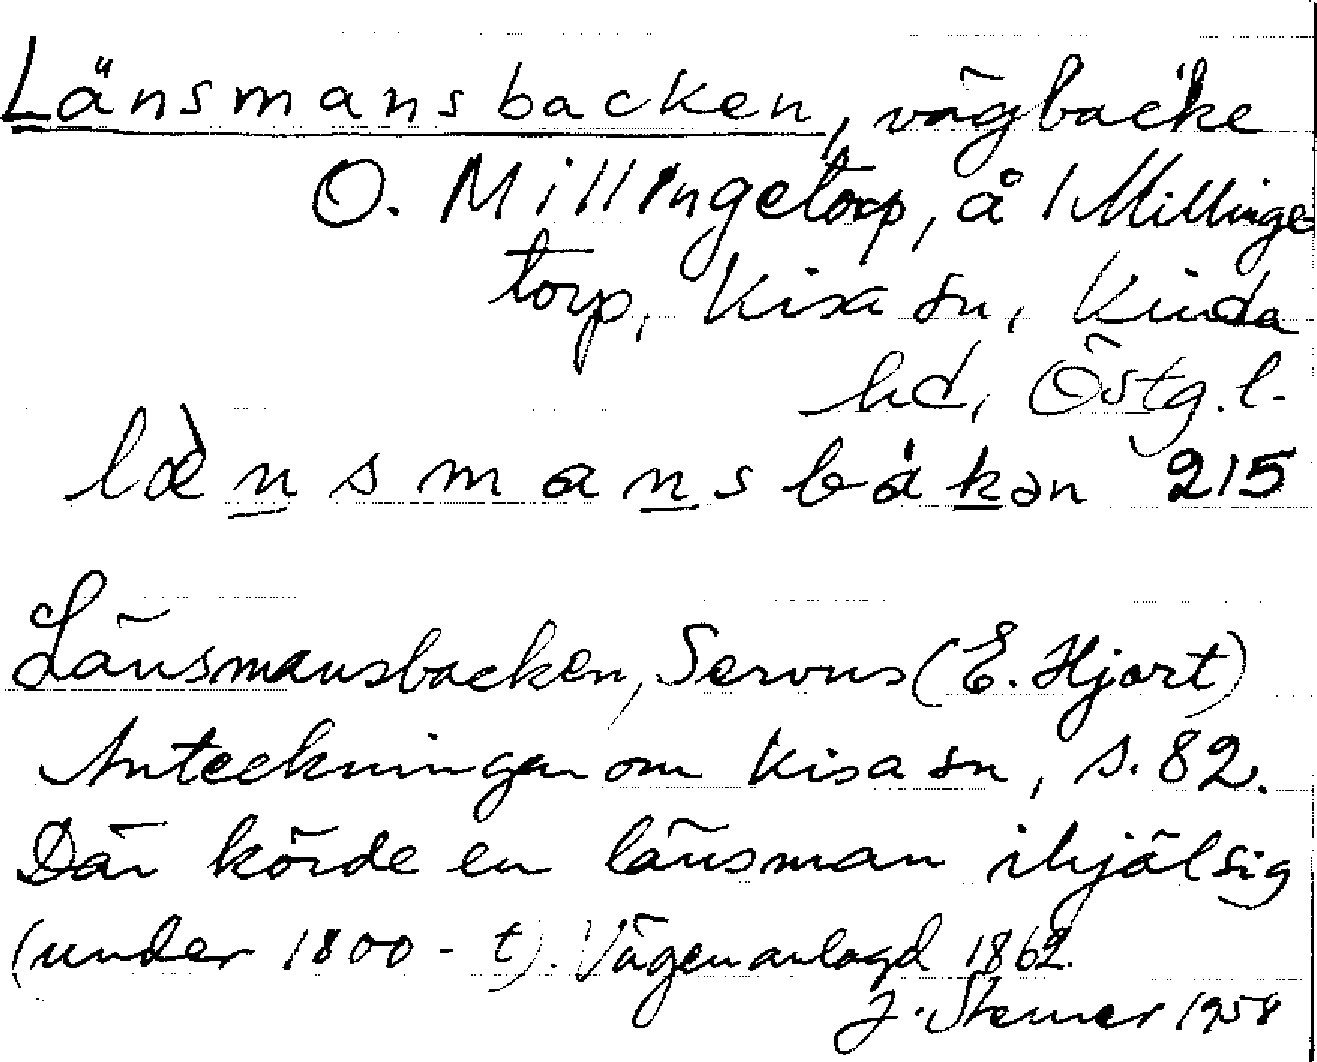 Länsmansbacken, vägbacke
O. Millingetorp, å 1 Millinge
torp, Kisa sn, Kinda
hd, Östg. l.
læ̀nsmansbákən 215
Länsmansbacken, Servus (E. Hjort)
Anteckningar om Kisa sn, s. 82.
Där körde en länsman ihjäl sig
(under 1800-t). Vägen anlagd 1862.
J. Sterner 1958